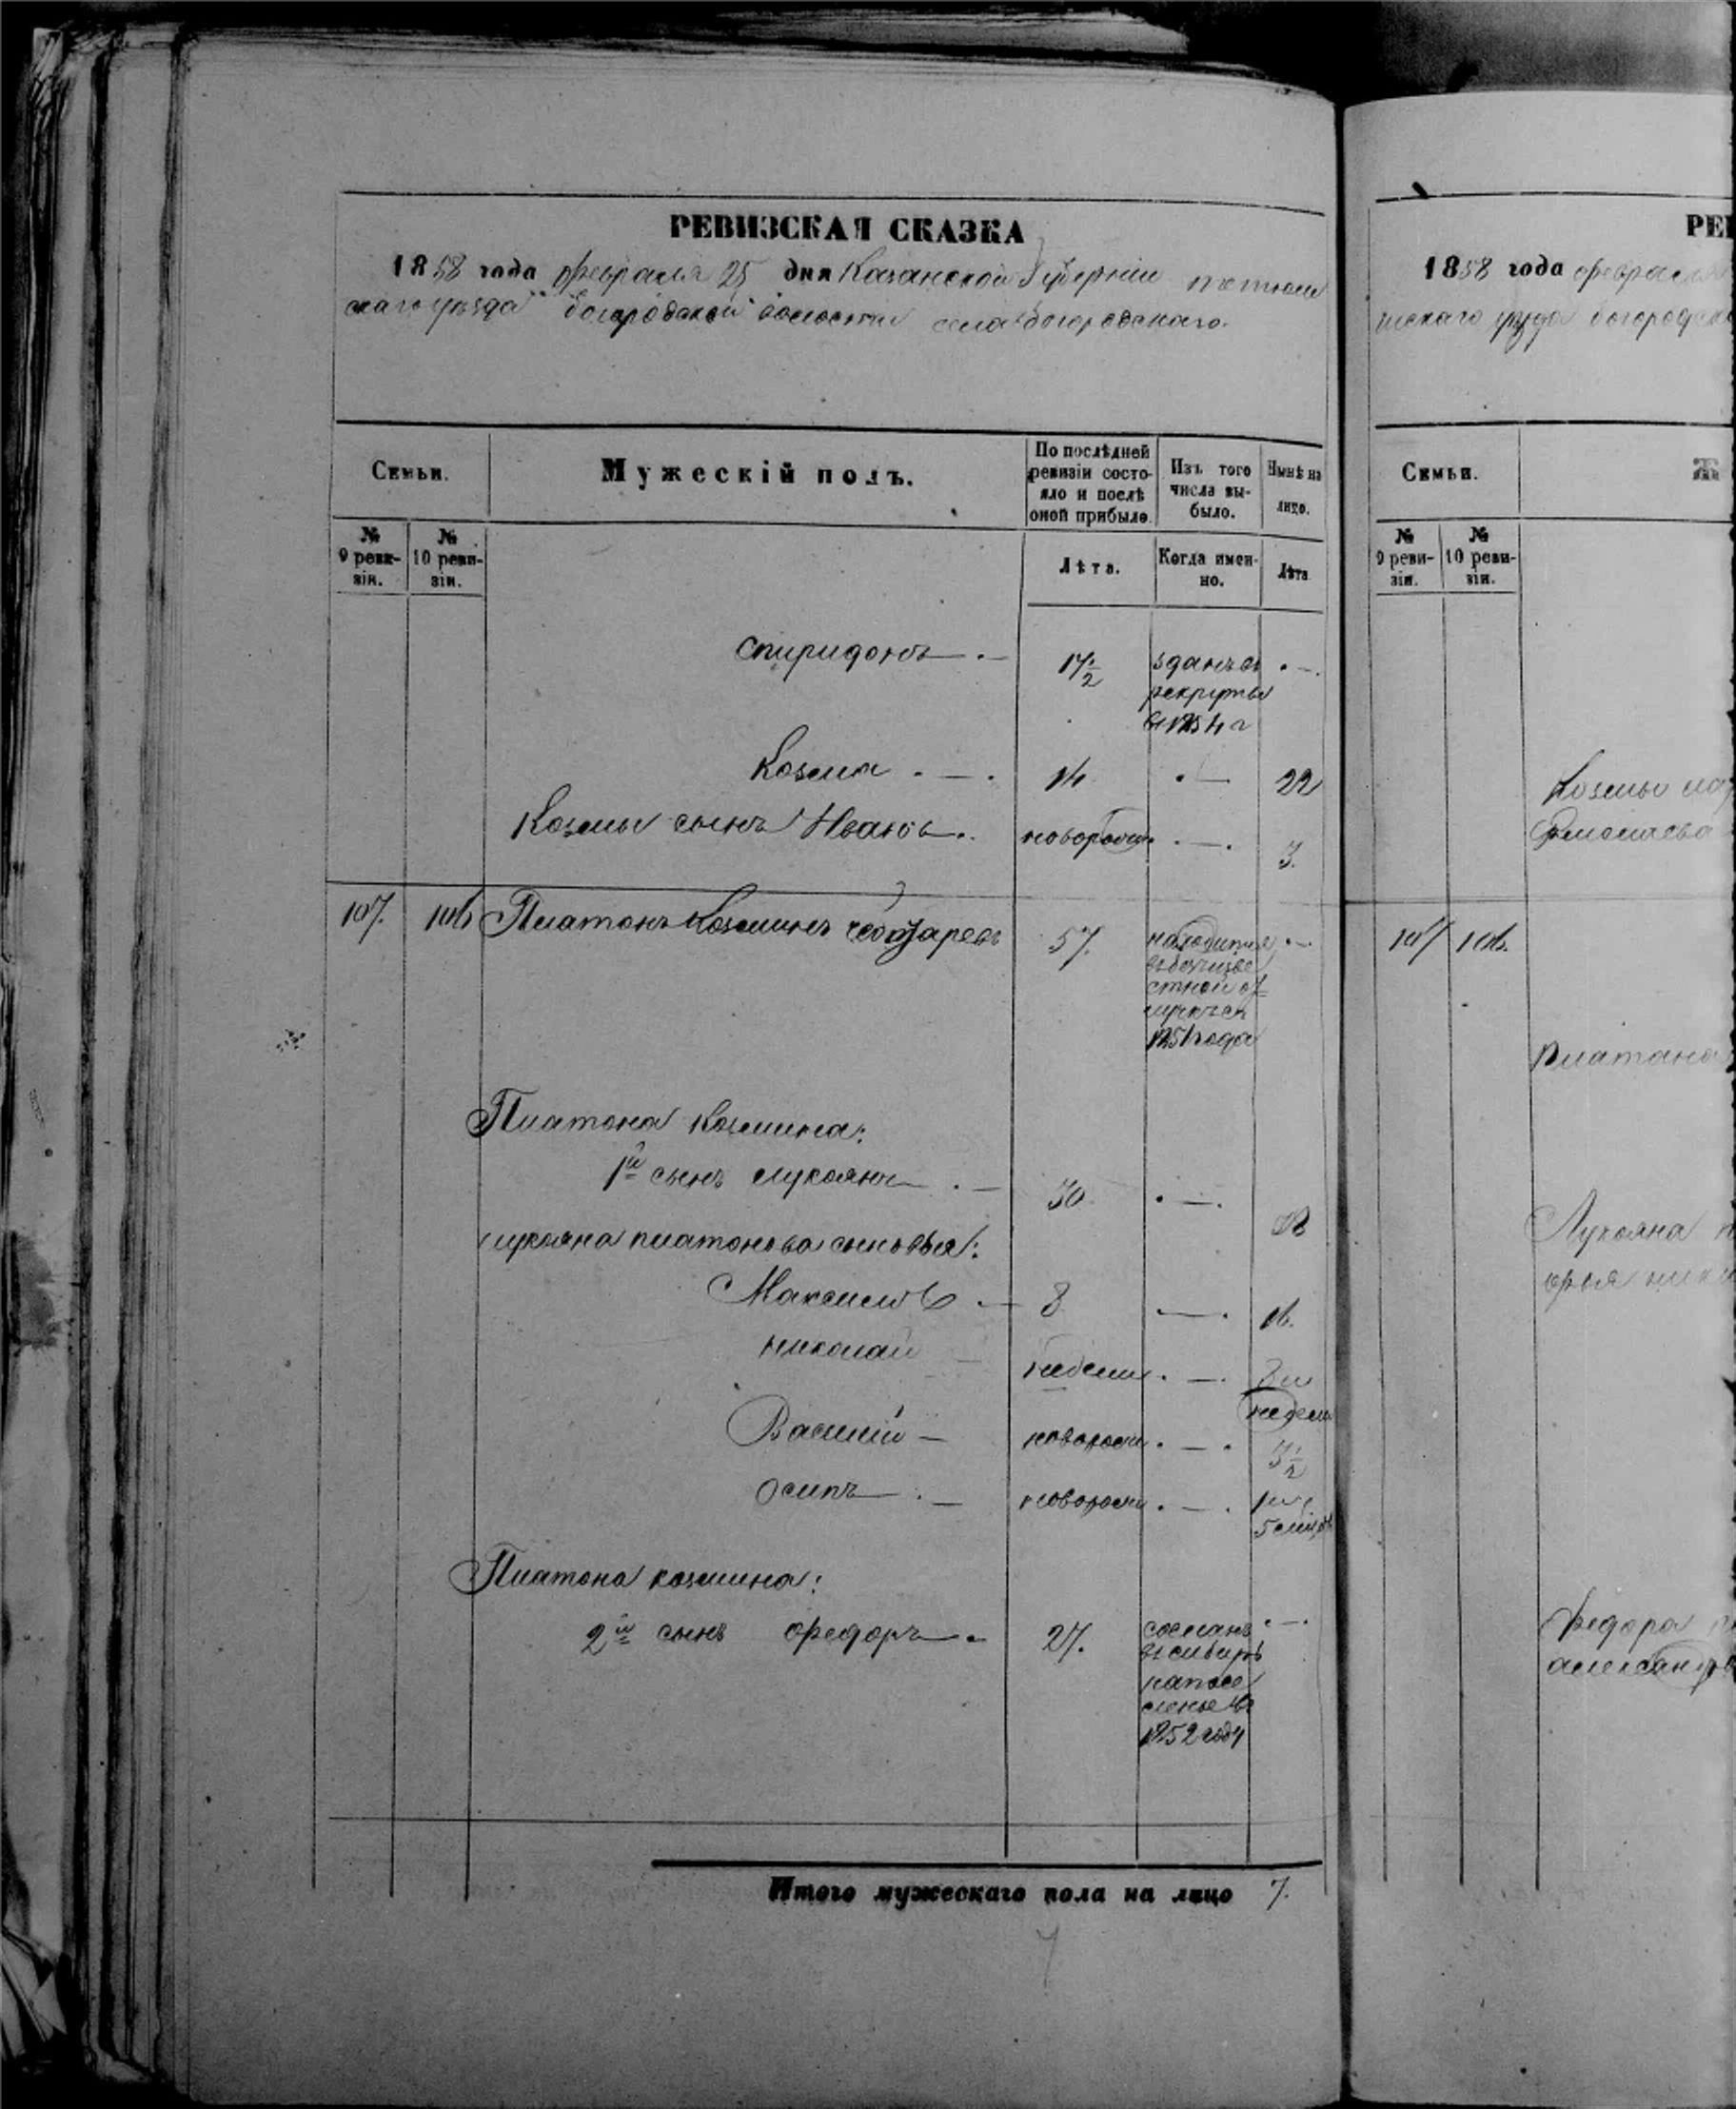 РЕВИЗСКАЯ СКАЗКА
1858 года февраля 25 дня Казанской Губерніи тетюш
скаго уѣзда богородской волости села богородскаго.
Семьи.
Мужескій полъ.
По послѣдней ревизіи состояло и послѣ оной прибыло.
Изъ того числа выбыло.
Нынѣ на лицо.
№ 9 ревизіи.
№ 10 ревизіи.
Лѣта.
Когда именно.
Лѣта
Спиридонъ 17½ зданъ въ
рекруты
въ 1854 г
Козма 14 22
Козмы сынъ Иванъ новорожд. 3.
107. 106 Платонъ Козминъ 57. находится
въ безъизве
стной от
лучкѣ съ
1851 года
Платона Козмина:
1й сынъ лукоянъ 30. 38
лукояна платонова сыновья:
Максимъ 8 16.
николай недели
недели
Василій новорожд. 3½
осипъ новорожд.
5 мѣс
Платона козмина:
2й сынъ федоръ 27. сосланъ
въ сибирь
на посе
ленье въ
1852 году
Итого мужескаго пола на лицо 7.
7
РЕ
1858 года феврал
шскаго уѣзда богородск
Семьи.
Ж
№ 9 ревизіи.
№ 10 ревизіи.
Козмы
107 106.
Платона
Лукояна
федора